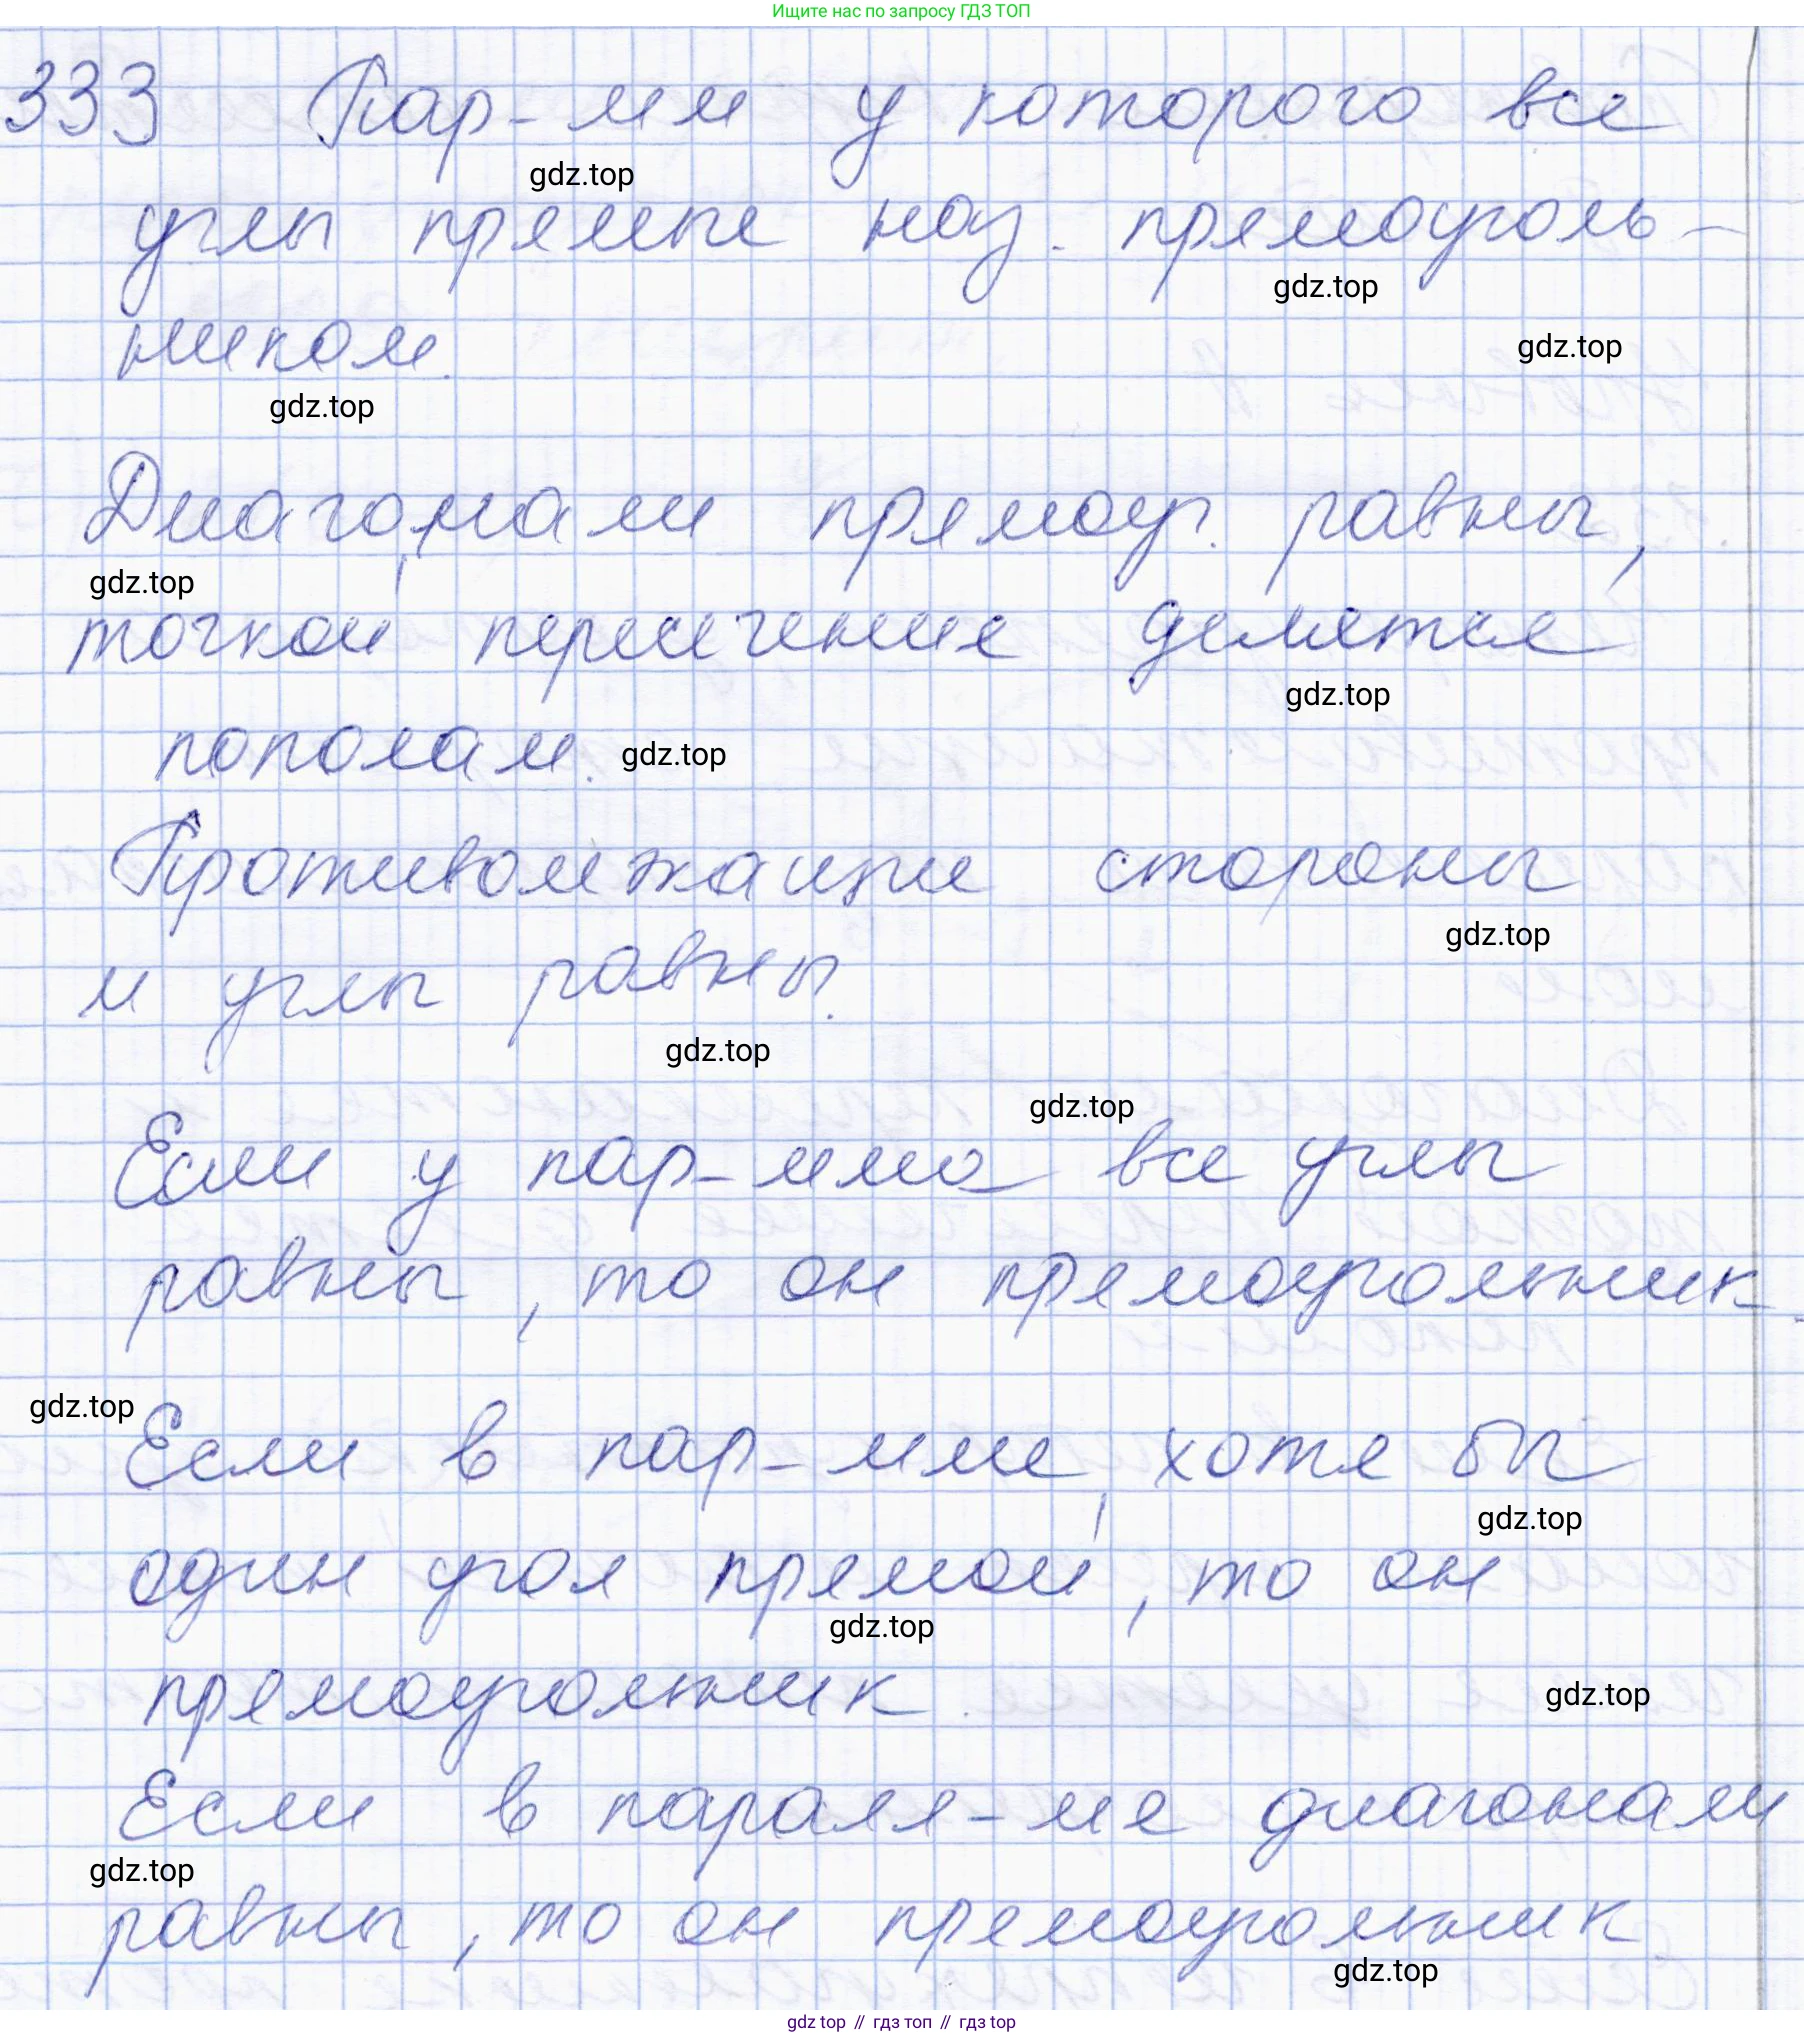 Ищите нас по запросу ГДЗ ТОП
333 Пар-мм у которого все
gdz.top
углы прямые наз. прямоуголь-
gdz.top
ником.
gdz.top
gdz.top
Диагонали прямоуг. равны,
gdz.top
точкой пересечения делятся
gdz.top
пополам.
gdz.top
Противолежащие стороны
gdz.top
и углы равны.
gdz.top
gdz.top
Если у пар-мма все углы
равны, то он прямоугольник.
gdz.top
Если в пар-мме хотя бы
gdz.top
один угол прямой, то он
gdz.top
прямоугольник.
gdz.top
Если в паралл-ме диагонали
gdz.top
равны, то он прямоугольник.
gdz.top
gdz top // гдз топ // gdz top